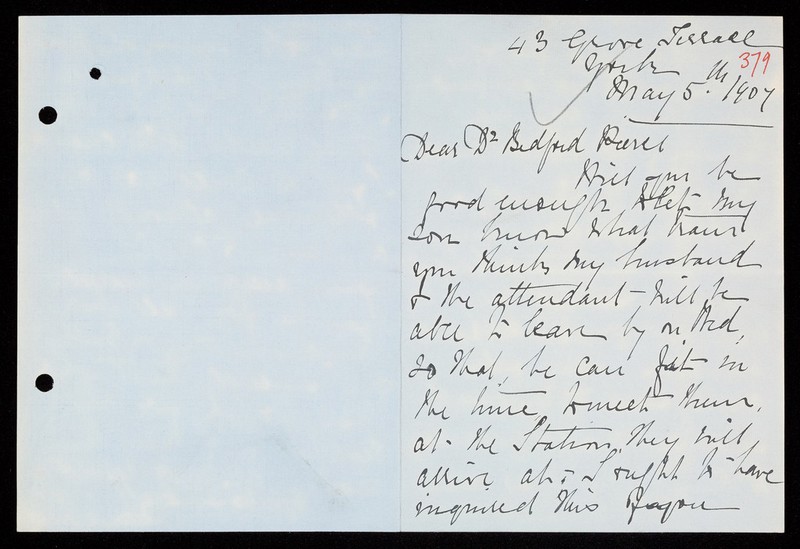 43 Grove Terrace
York 379
May 5.th 1907
Dear Dr Bedford Pierce
Will you be
good enough to let my
son know what train
you think my husband
& the attendant will be
able to leave by on Wed,
so that, he can fit in
the time, to meet them,
at the Station, they will
arrive at, & I ought to have
inquired this before